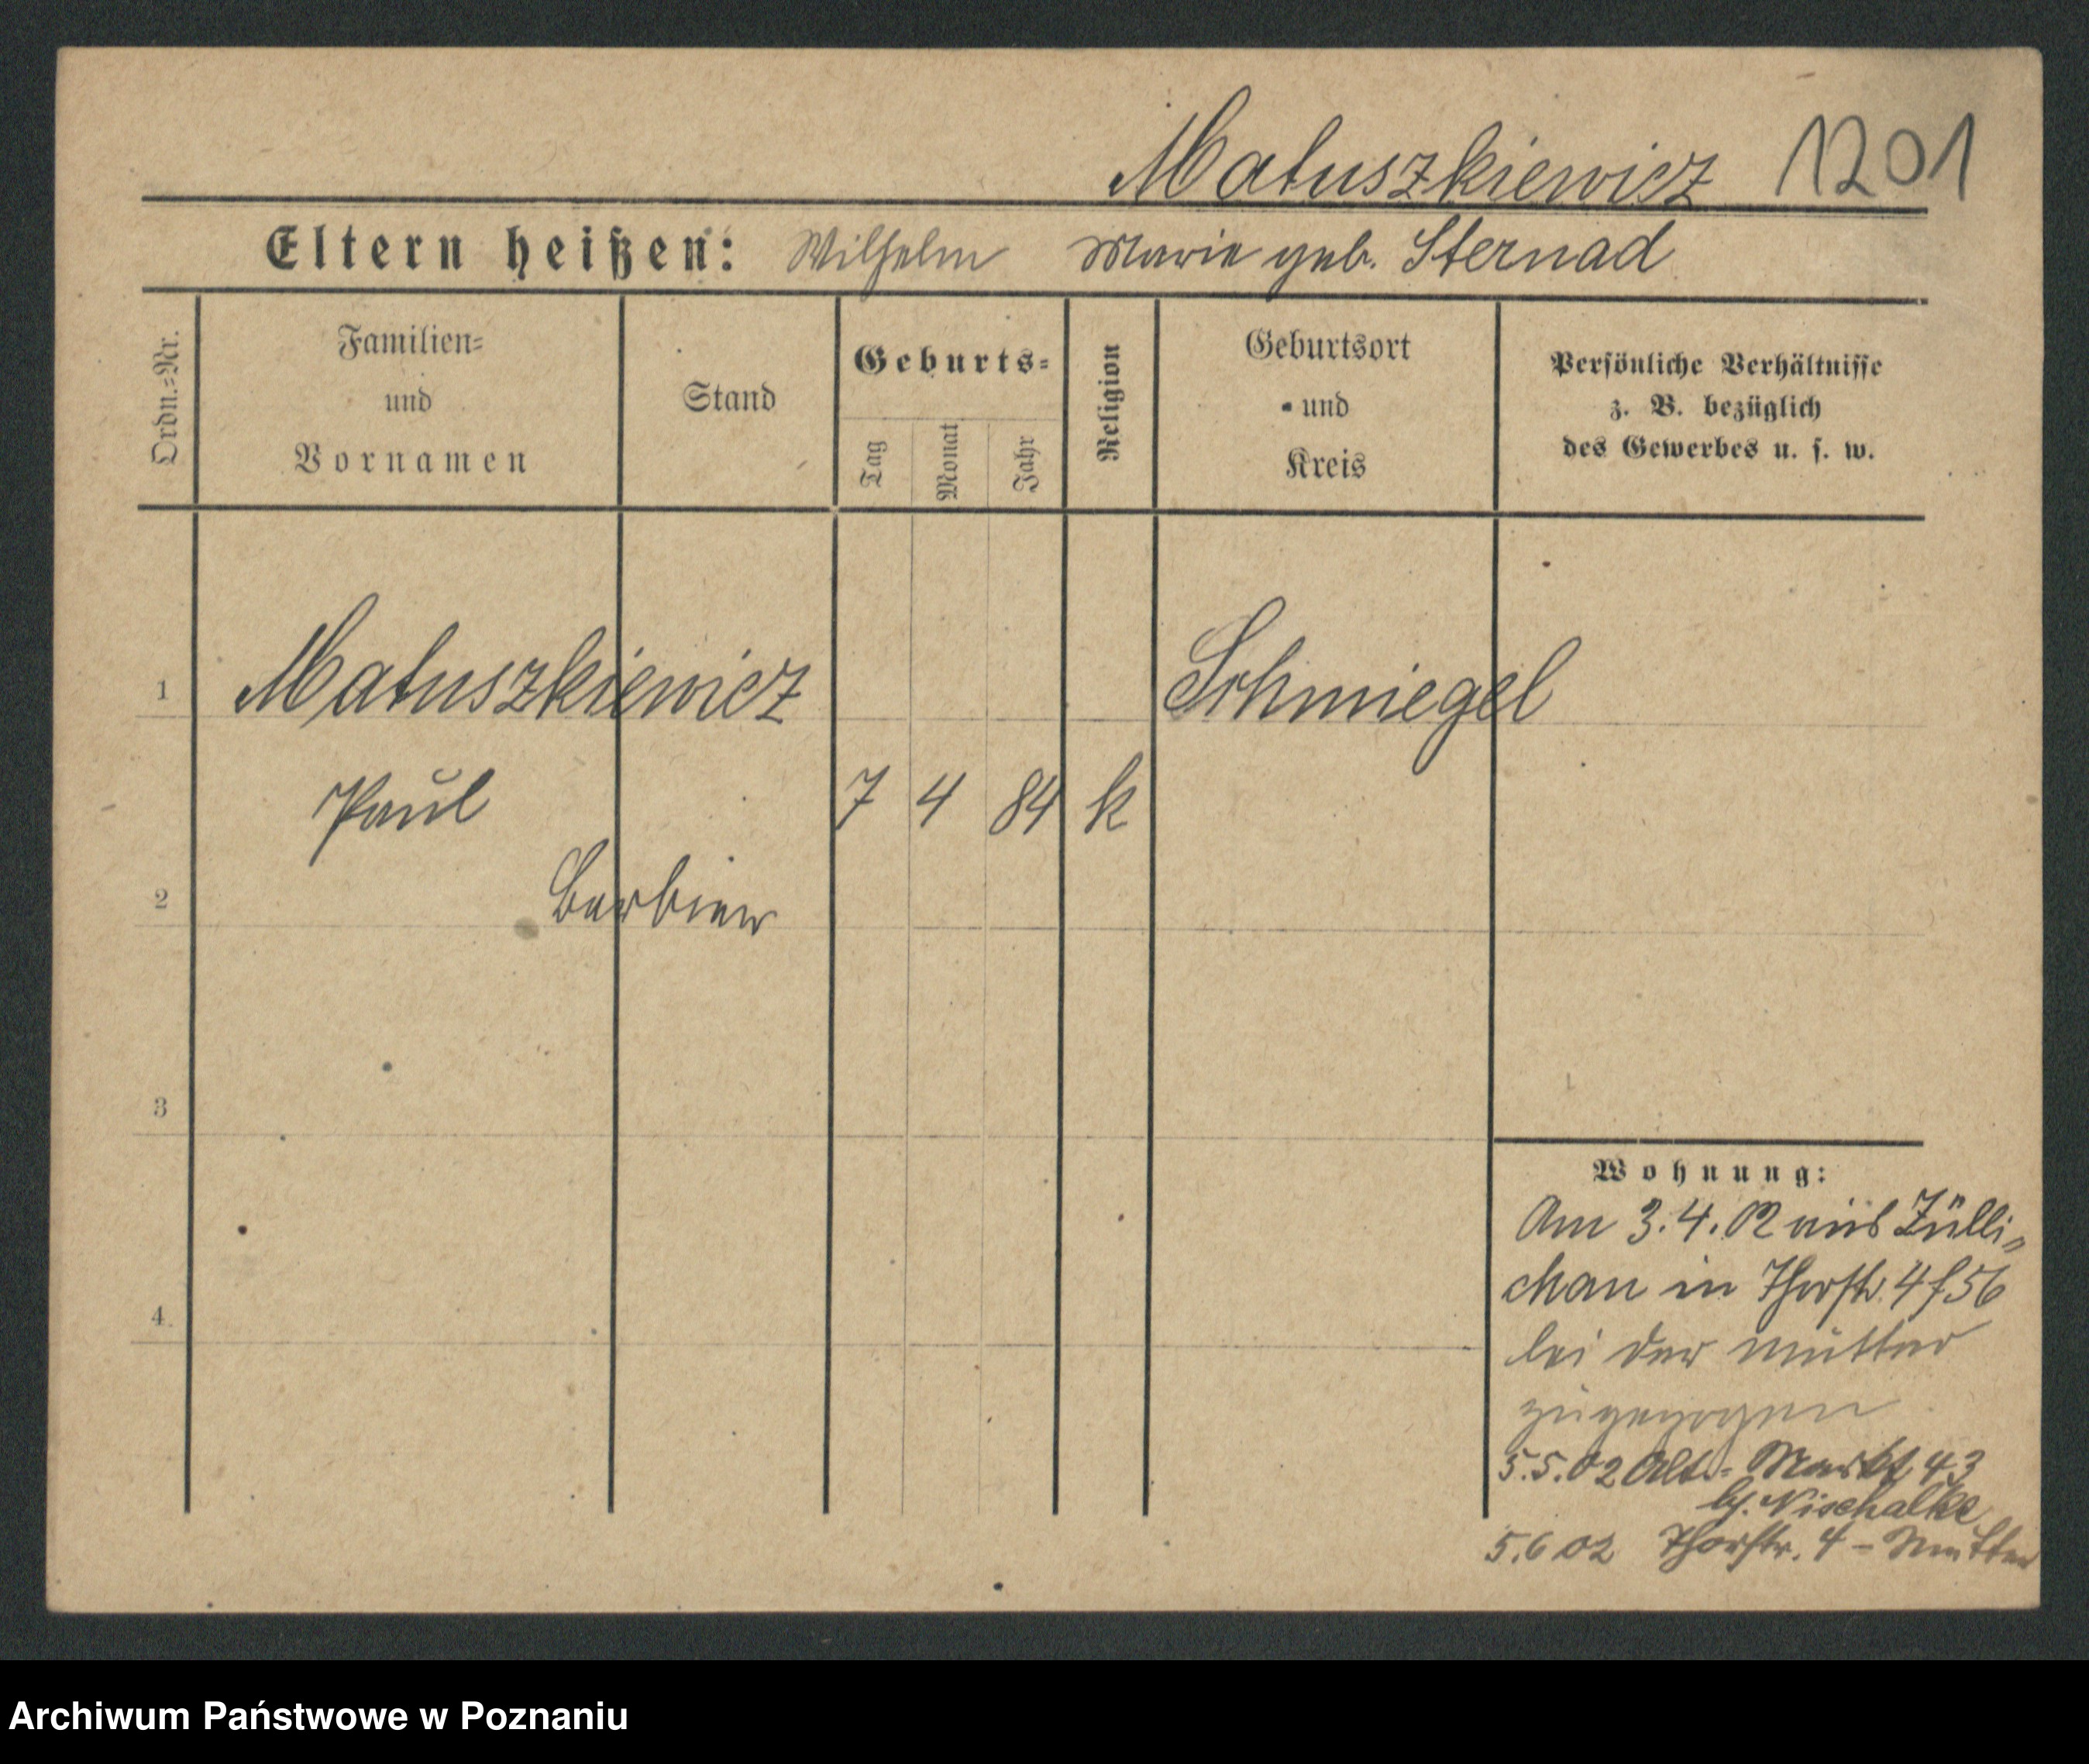 Matuszkiewicz 1201
Eltern heißen: Wilhelm Marie geb. Sternad
Ordn.=Nr.
Familien=
und
Vornamen
Stand
Geburts=
Tag
Monat
Jahr
Religion
Geburtsort
und
Kreis
Persönliche Verhältnisse
z. B. bezüglich
des Gewerbes u. s. w.
1 Matuszkiewicz Schmiegel
Paul 7 4 84 k
2 Barbier
3
4
Wohnung:
Am 3.4.02 aus Zülli=
chau in Thorstr. 4 f 56
bei der Mutter
zugezogen
5.5.02 Alt.- Markt 43
b/. Nischalke
5.6 02 Thorstr. 4 - Mutter
Archiwum Państwowe w Poznaniu